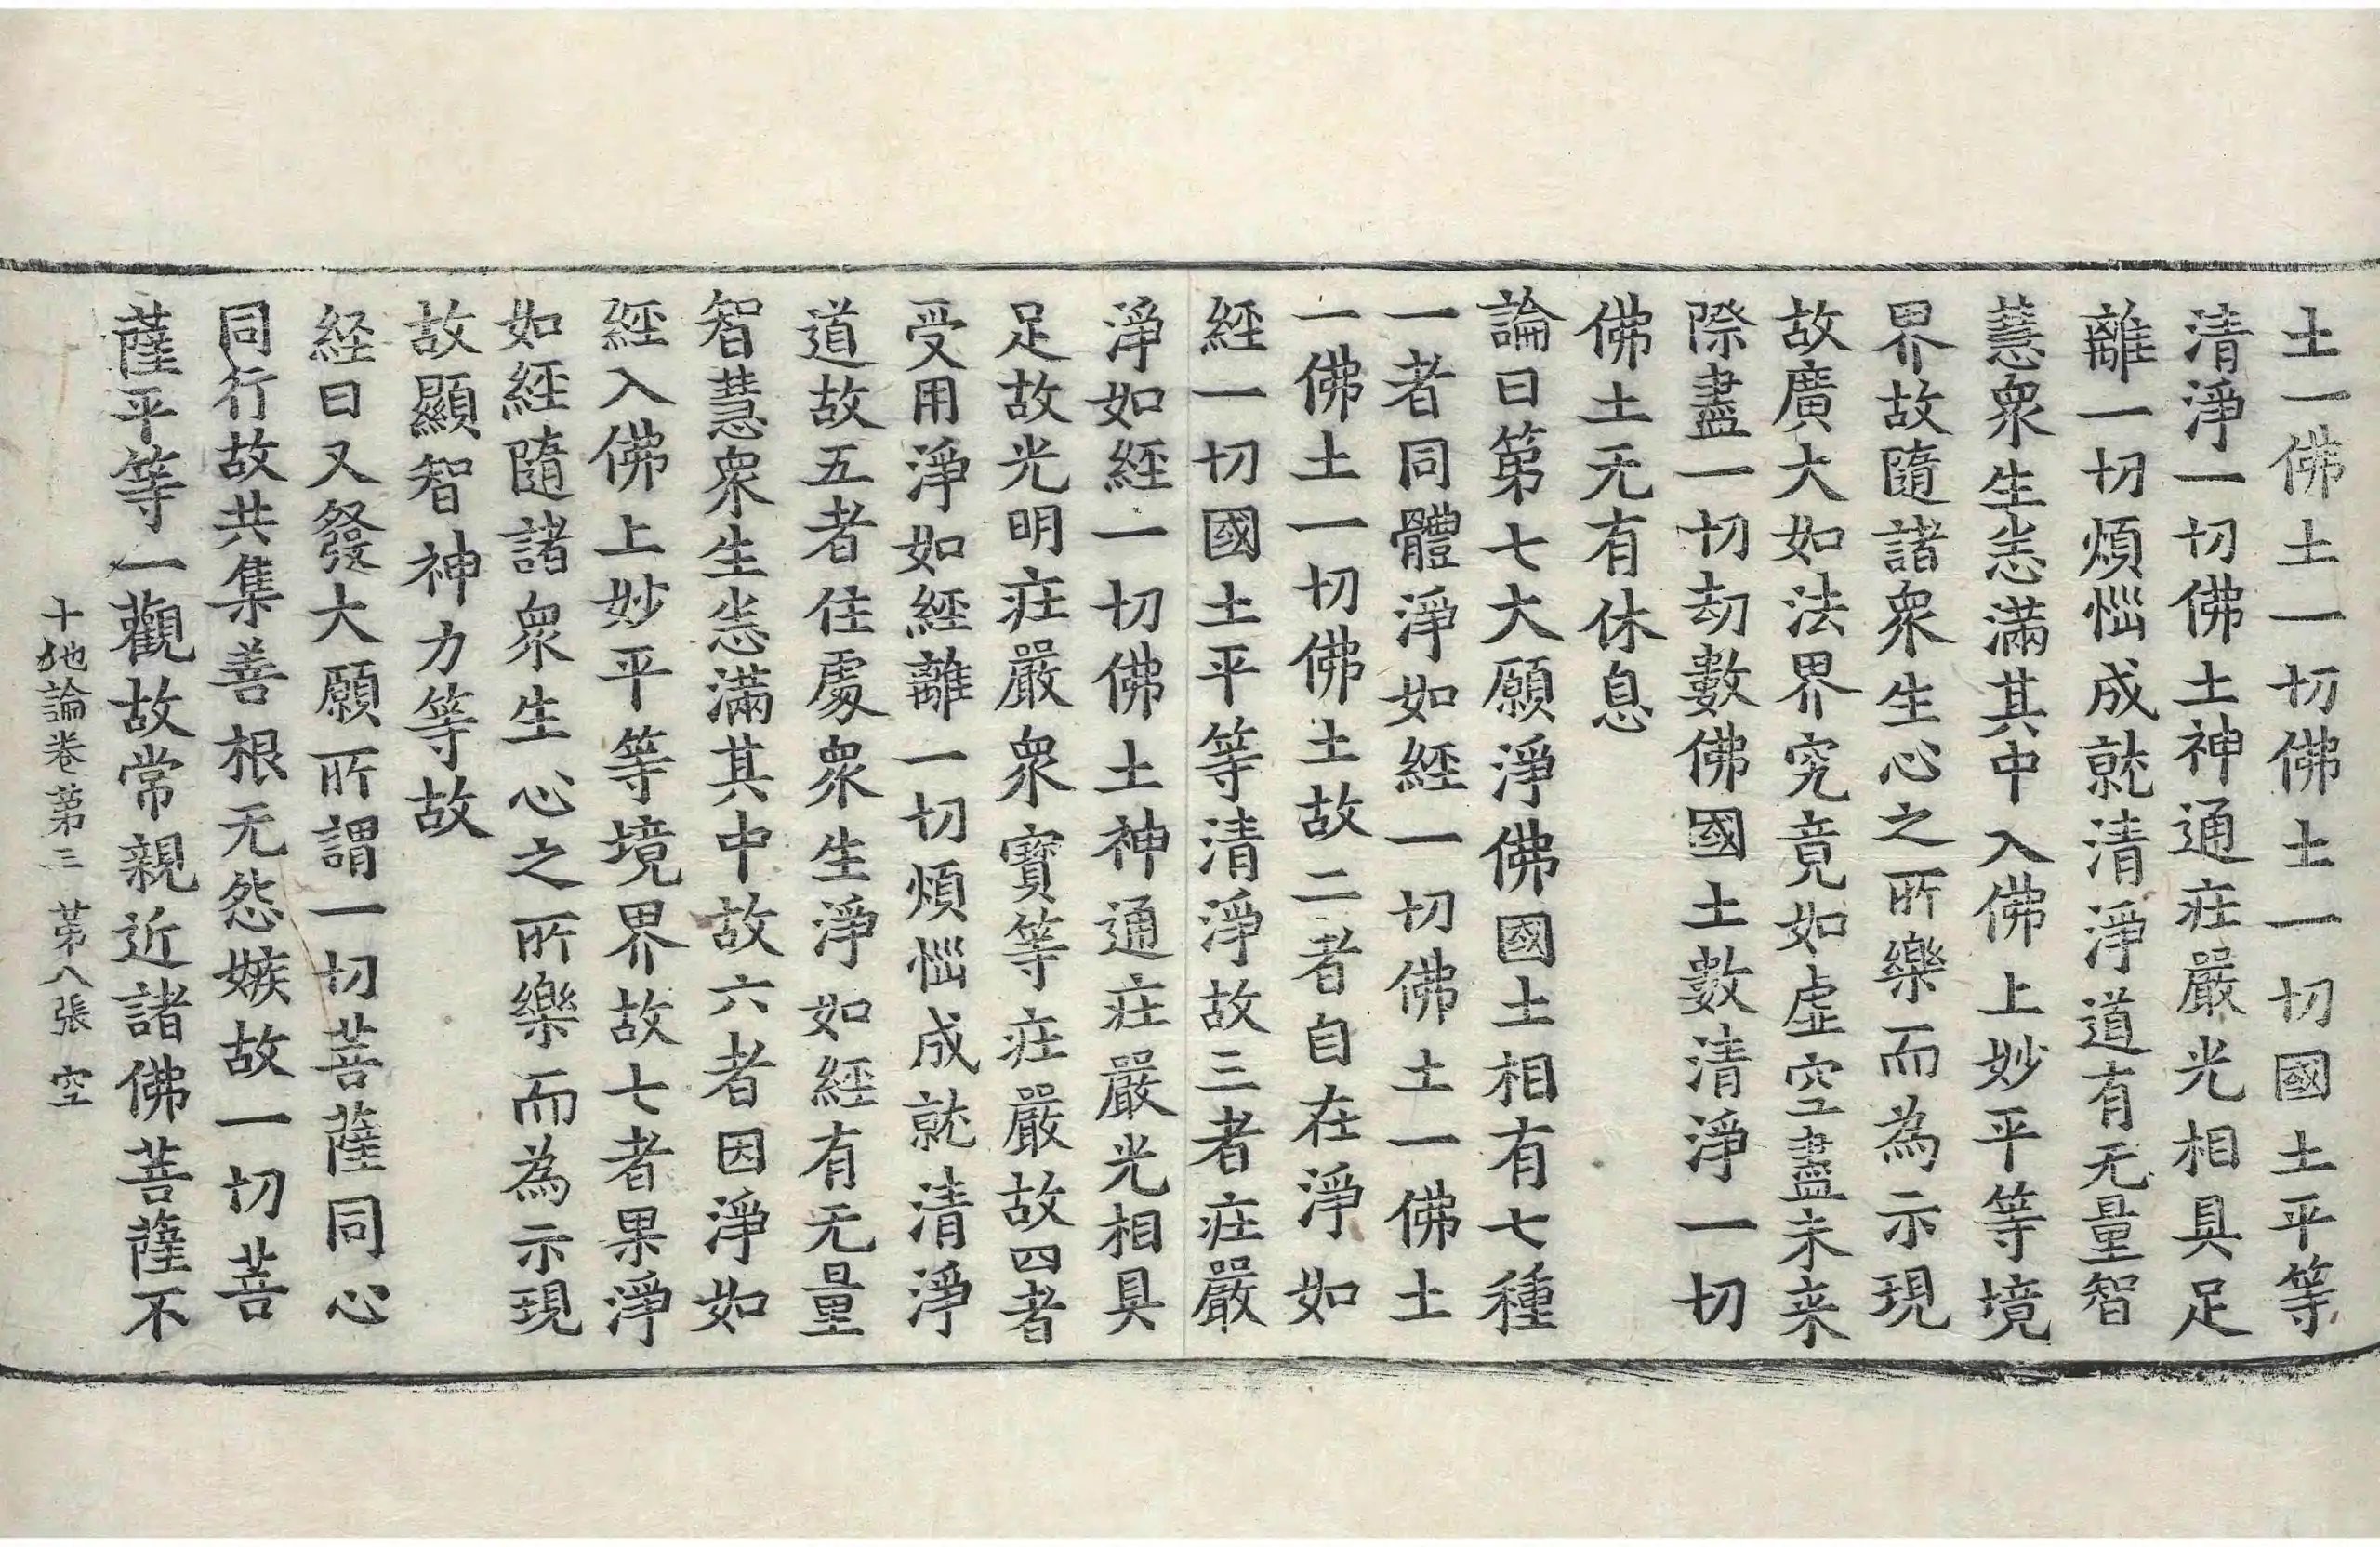 土一佛土一切佛土一切國土平等
清淨一切佛土神通莊嚴光相具足
離一切煩惱成就清淨道有无量智
慧衆生悉滿其中入佛上妙平等境
界故隨諸衆生心之所樂而為示現
故廣大如法界究竟如虛空盡未来
際盡一切劫數佛國土數清淨一切
佛土无有休息
論曰第七大願淨佛國土相有七種
一者同體淨如經一切佛土一佛土
一佛土一切佛土故二者自在淨如
經一切國土平等清淨故三者莊嚴
淨如經一切佛土神通莊嚴光相具
足故光明莊嚴衆寶等莊嚴故四者
受用淨如經離一切煩惱成就清淨
道故五者住處衆生淨如經有无量
智慧衆生悉滿其中故六者因淨如
經入佛上妙平等境界故七者果淨
如經隨諸衆生心之所樂而為示現
故顯智神力等故
経曰又發大願所謂一切菩薩同心
同行故共集善根无怨嫉故一切菩
薩平等一觀故常親近諸佛菩薩不
十地論卷第三 第八張 空